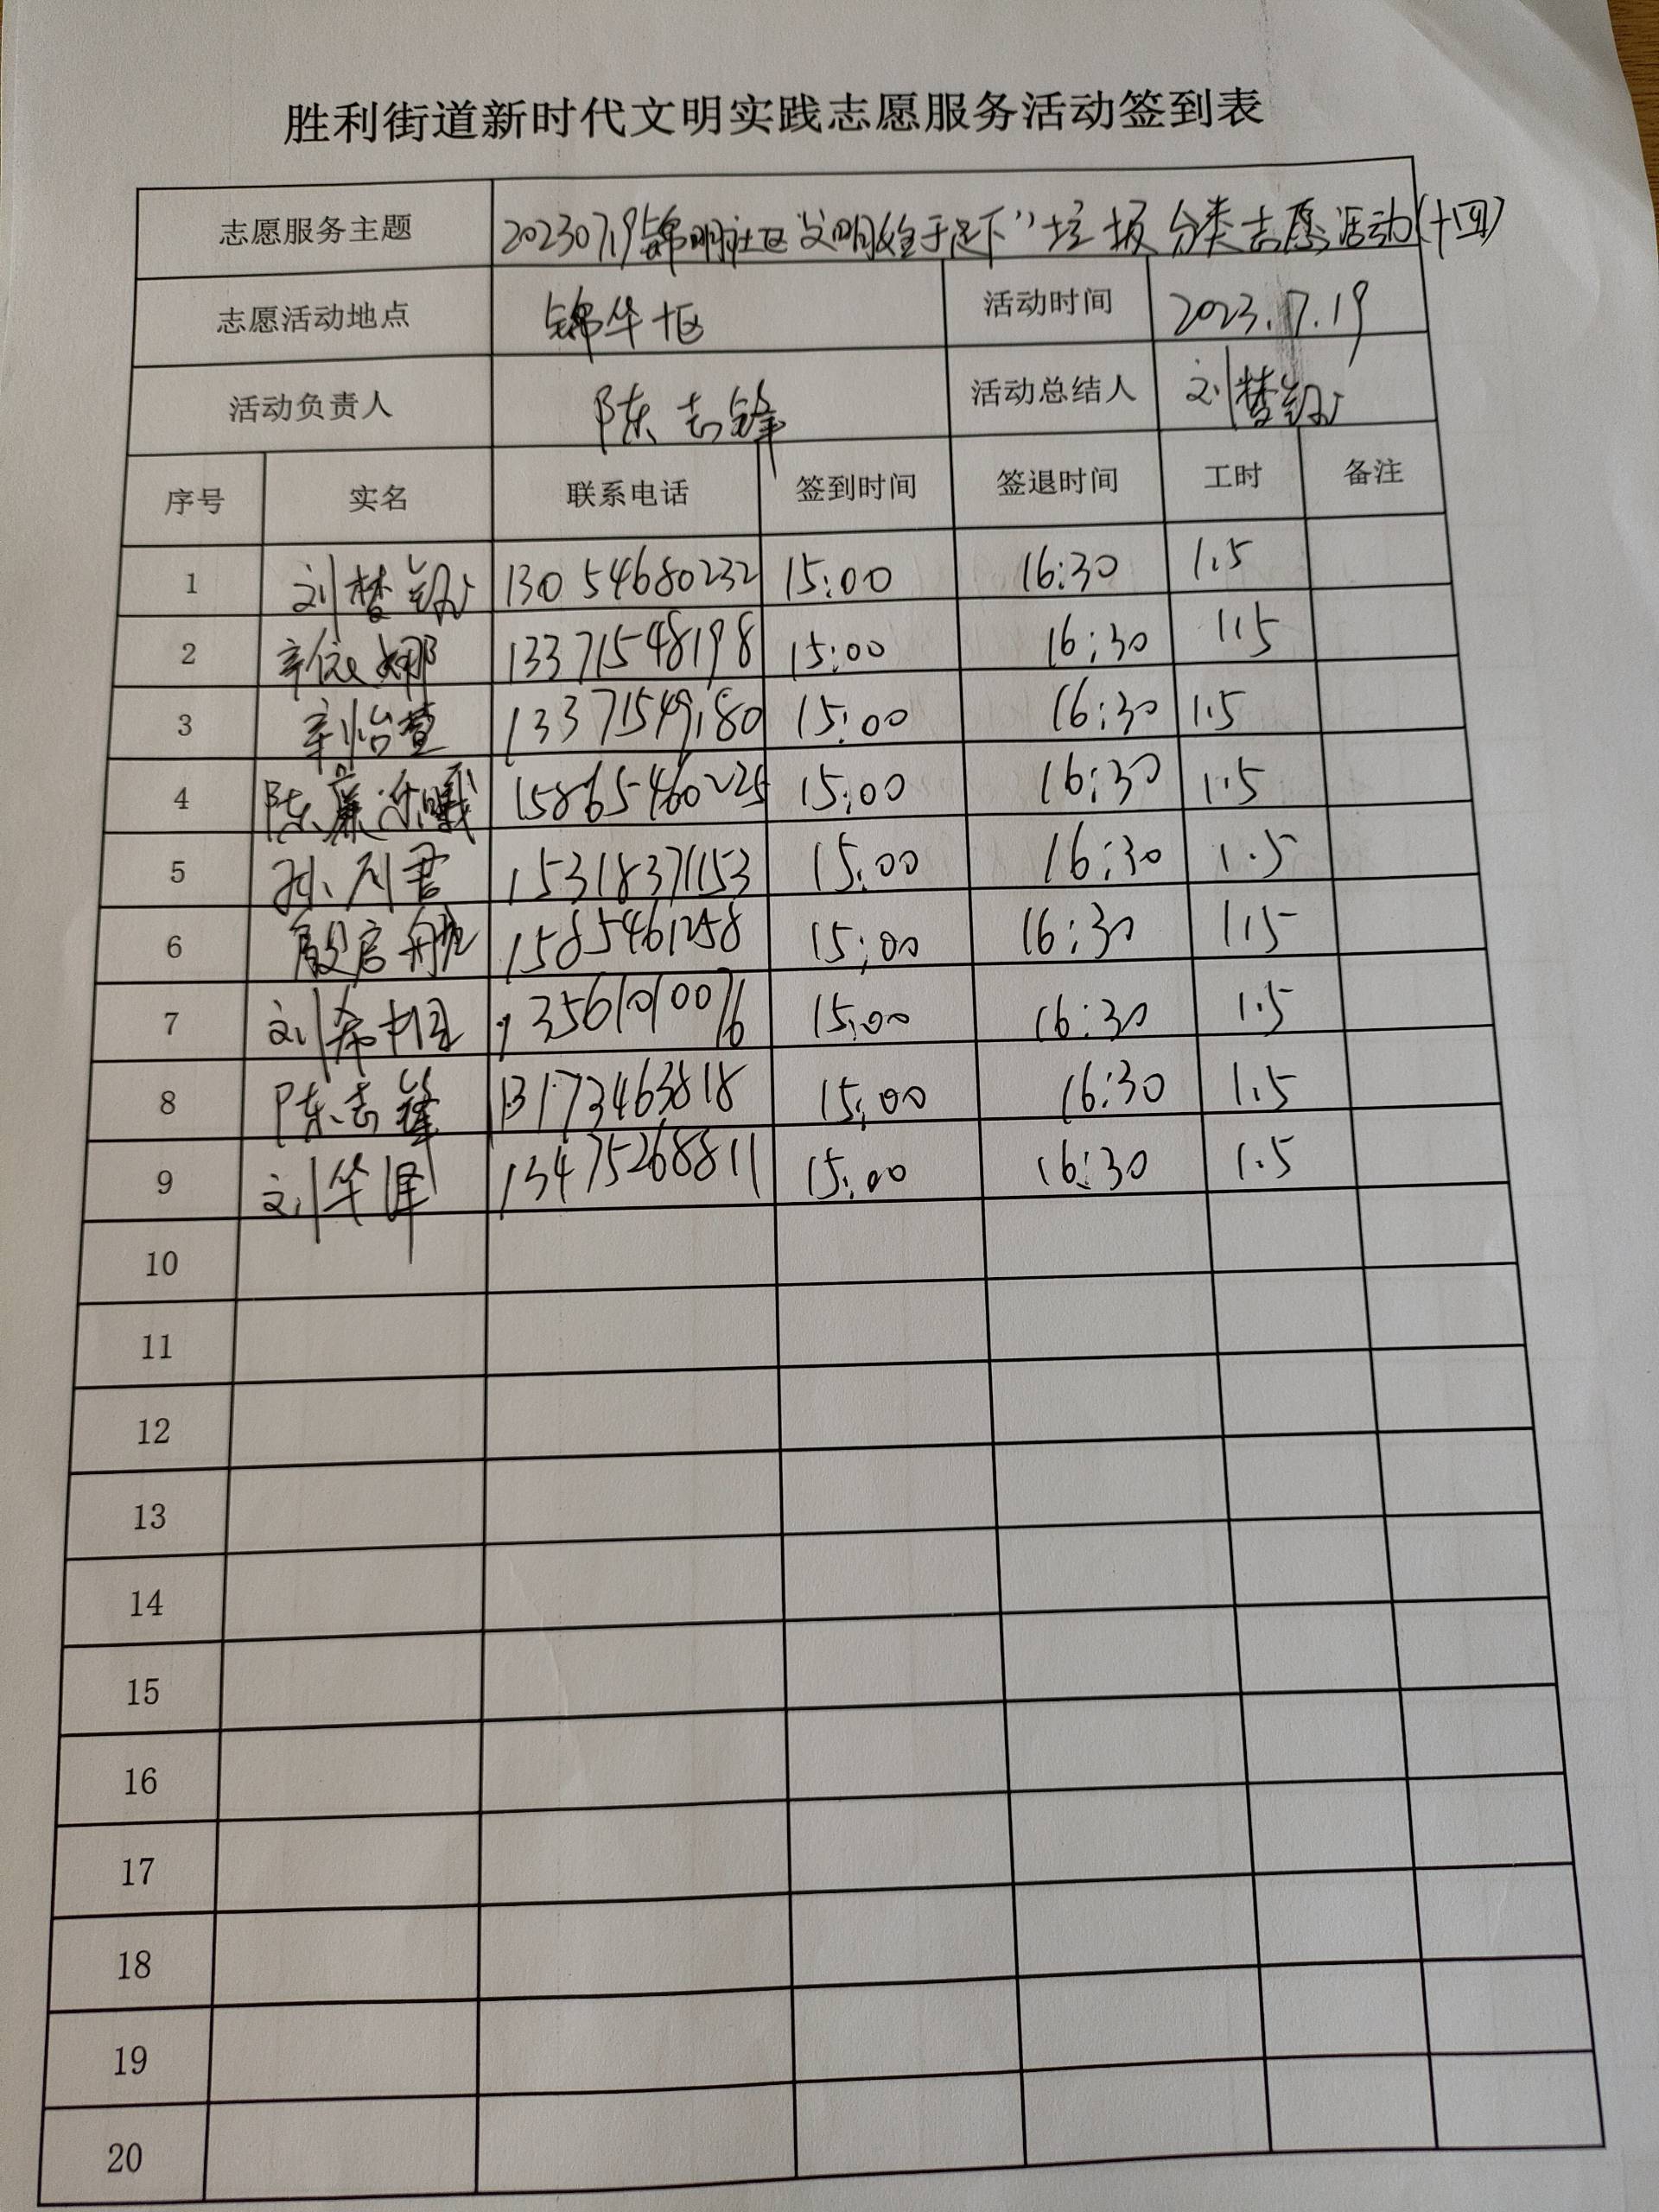 胜利街道新时代文明实践志愿服务活动签到表
志愿服务主题 20230719锦明社区"文明始于足下"垃圾分类志愿活动(十四)
志愿活动地点 锦华十区 活动时间 2023.7.19
活动负责人 陈志锋 活动总结人 刘梦钗
序号 实名 联系电话 签到时间 签退时间 工时 备注
1 刘梦钗 13054680232 15:00 16:30 1.5
2 辛依娜 13371548198 15:00 16:30 1.5
3 辛怡萱 13371549180 15:00 16:30 1.5
4 陈 15865460225 15:00 16:30 1.5
5 孙刘君 15318371153 15:00 16:30 1.5
6 殷启航 15854611258 15:00 16:30 1.5
7 刘希 13561010076 15:00 16:30 1.5
8 陈志锋 13173463818 15:00 16:30 1.5
9 刘华泽 13475268811 15:00 16:30 1.5
10
11
12
13
14
15
16
17
18
19
20